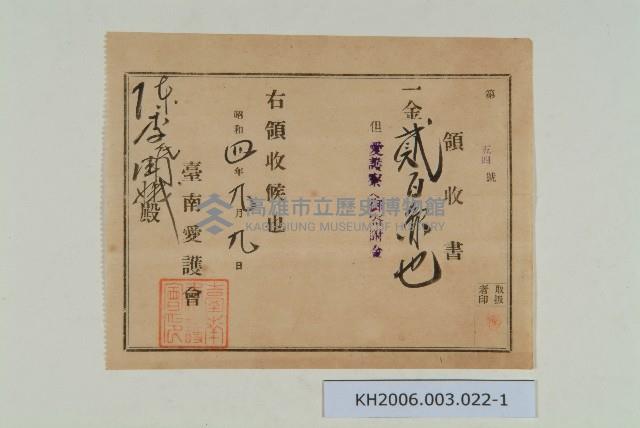 領收書
第 五四 號
一金貳百圓也
但 愛護寮
右領收候也
昭和四年九月九日
臺南愛護會
殿
取扱者印
高雄市立歷史博物館
KAOHSIUNG MUSEUM OF HISTORY
KH2006.003.022-1